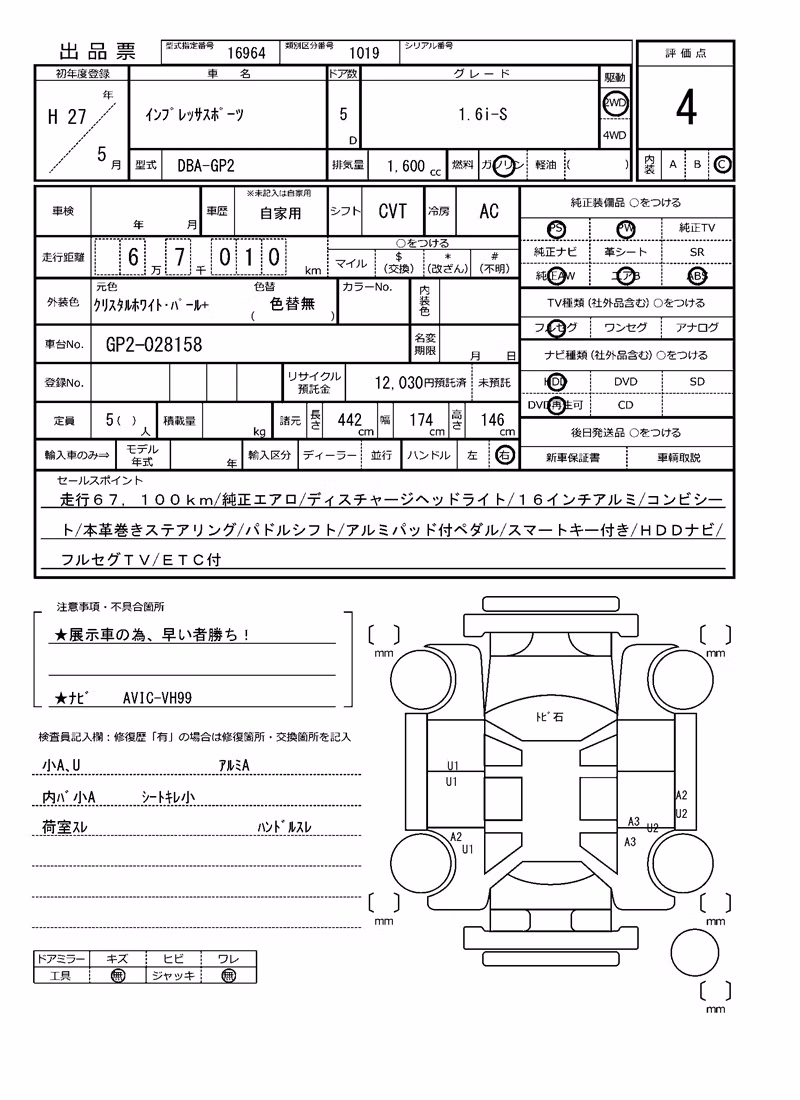 出品票 型式指定番号 16964 類別区分番号 1019 シリアル番号 評価点
初年度登録 車 名 ドア数 グレード 駆動
H 27 年 5 月 インプレッサスポーツ 5 D 1.6i-S 2WD 4WD 4
型式 DBA-GP2 排気量 1,600 cc 燃料 ガソリン 軽油 ( ) 内装 A B C
車検 年 月 車歴 ※未記入は自家用 自家用 シフト CVT 冷房 AC
走行距離 6 万 7 千 0 1 0 km ○をつける マイル $ (交換) * (改ざん) # (不明)
外装色 元色 クリスタルホワイト・パール+ 色替 ( 色替無 ) カラーNo. 内装色
車台No. GP2-028158 名変期限 月 日
登録No. リサイクル預託金 12,030円預託済 未預託
定員 5( ) 人 積載量 kg 諸元 長さ 442 cm 幅 174 cm 高さ 146 cm
輸入車のみ⇒ モデル年式 年 輸入区分 ディーラー 並行 ハンドル 左 右
純正装備品 ○をつける
PS PW 純正TV
純正ナビ 革シート SR
純正AW エアB ABS
TV種類(社外品含む)○をつける
フルセグ ワンセグ アナログ
ナビ種類(社外品含む)○をつける
HDD DVD SD
DVD再生可 CD
後日発送品 ○をつける
新車保証書 車輌取説
セールスポイント
走行67,100km/純正エアロ/ディスチャージヘッドライト/16インチアルミ/コンビシー
ト/本革巻きステアリング/パドルシフト/アルミパッド付ペダル/スマートキー付き/HDDナビ/
フルセグTV/ETC付
注意事項・不具合箇所
★展示車の為、早い者勝ち!
★ナビ AVIC-VH99
検査員記入欄:修復歴「有」の場合は修復箇所・交換箇所を記入
小A、U アルミA
内バ小A シートキレ小
荷室スレ ハンドルスレ
ドアミラー キズ ヒビ ワレ
工具 無 ジャッキ 無
mm mm
トビ石
U1
U1
A2
U2
A3 U2
A2
U1
A3
mm mm
mm